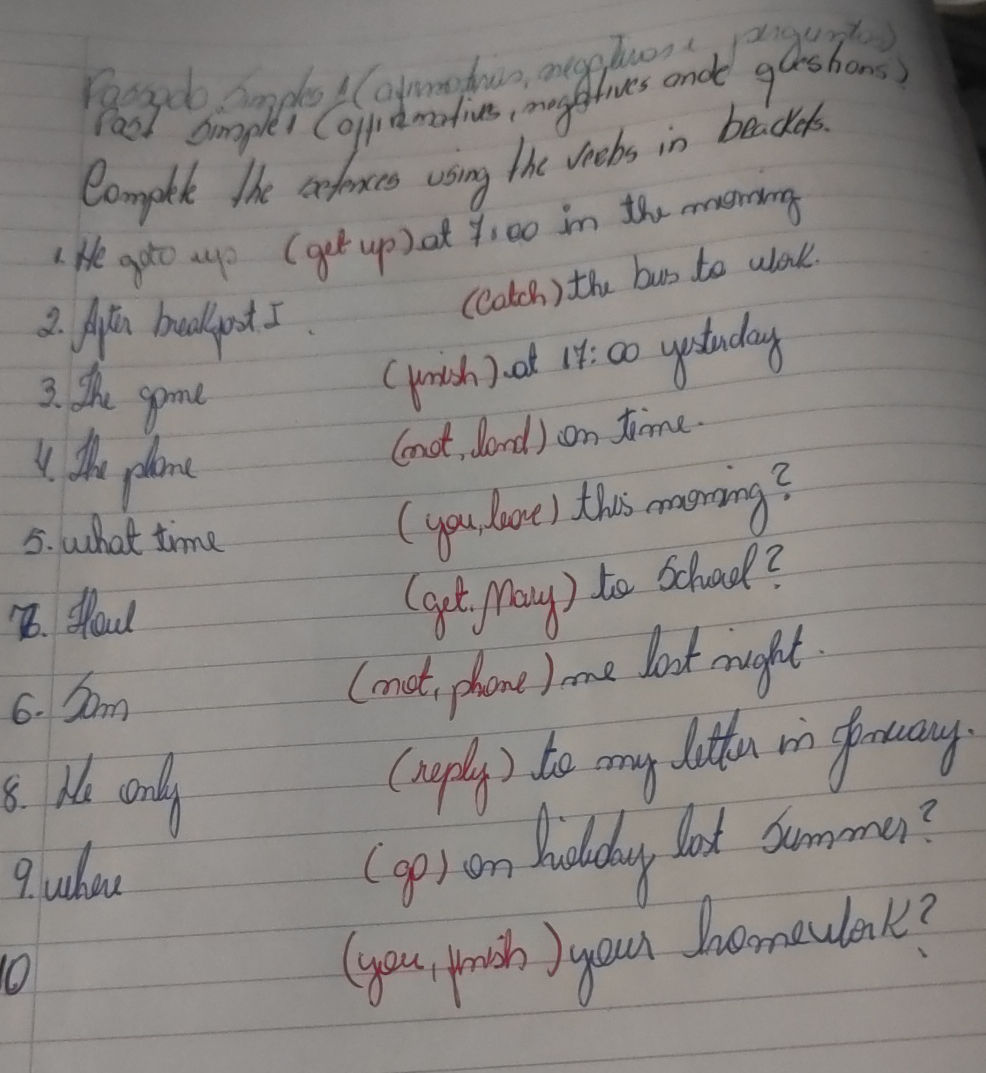 Passado simples (afirmativas, negativas e perguntas)
Past Simples (affirmatives, negatives and questions)
Complete the sentences using the verbs in brackets.
1. He goto up (get up) at 7:00 in the morning
2. After breakfast I (catch) the bus to work.
3. The game (finish) at 17:00 yesterday
4. The plane (not, land) on time.
5. what time (you, leave) this morning?
7. How (get. Mary) to School?
6. Sam (not, phone) me last night.
8. He only (reply) to my letter in January.
9. where (go) on holiday last summer?
10 (you, finish) your homework?